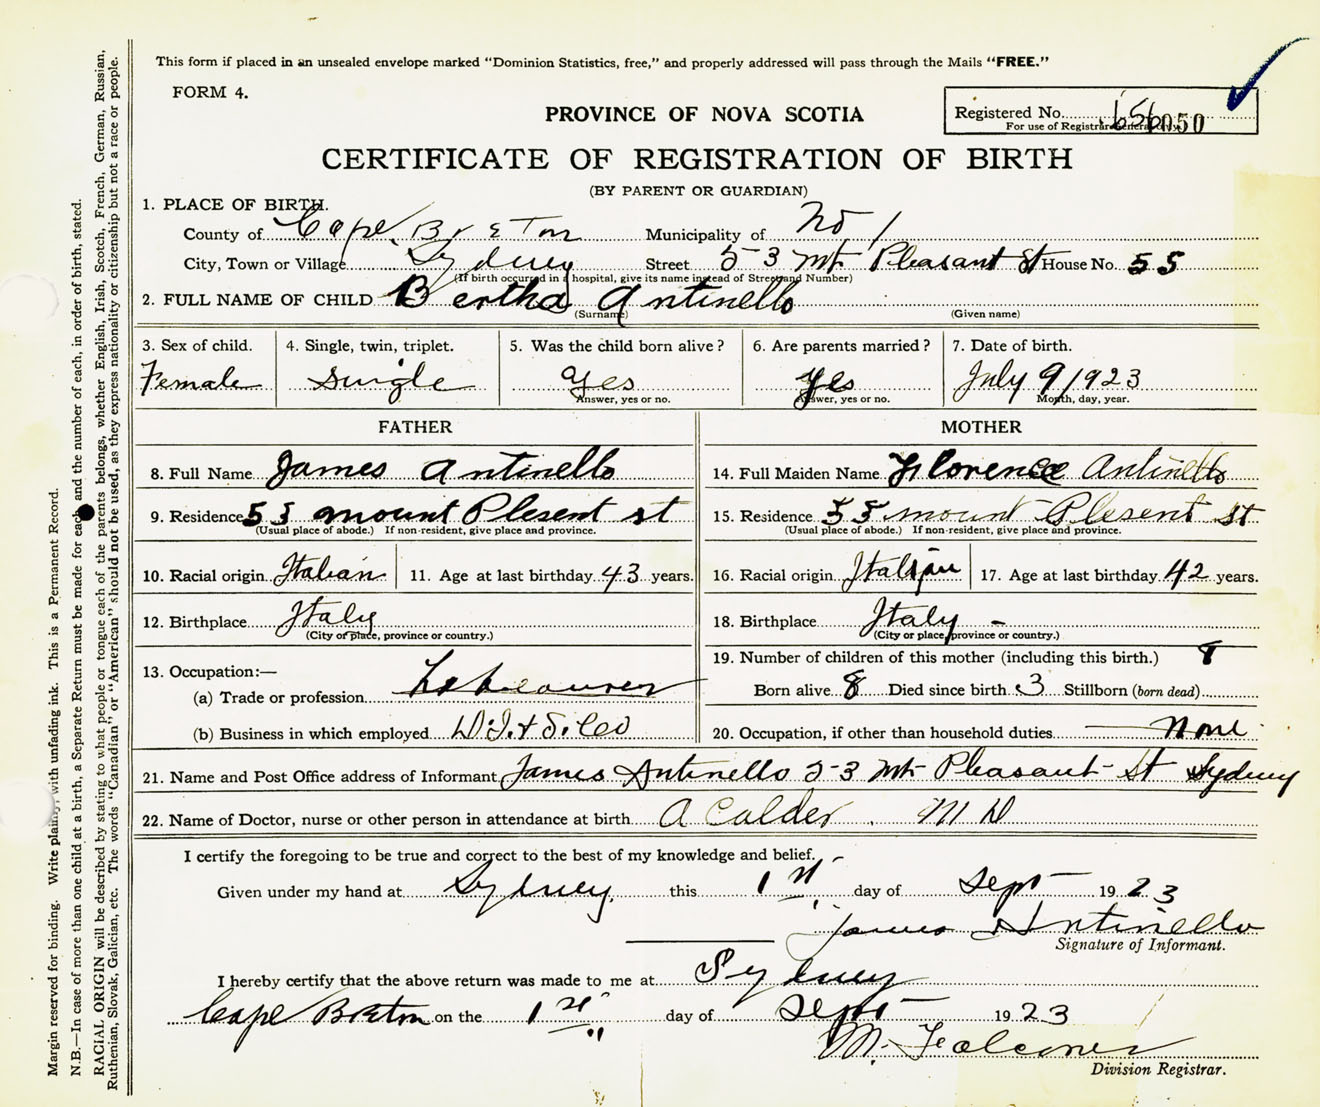 This form if placed in an unsealed envelope marked "Dominion Statistics, free," and properly addressed will pass through the Mails "FREE."
FORM 4.
PROVINCE OF NOVA SCOTIA
Registered No. 050
For use of Registrar General only.
CERTIFICATE OF REGISTRATION OF BIRTH
(BY PARENT OR GUARDIAN)
1. PLACE OF BIRTH.
County of Cape Breton Municipality of No 1
City, Town or Village Sydney Street 53 Mt Pleasant St House No. 55
(If birth occurred in a hospital, give its name instead of Street and Number)
2. FULL NAME OF CHILD Bertha Antinello
(Surname) (Given name)
3. Sex of child. 4. Single, twin, triplet. 5. Was the child born alive? 6. Are parents married? 7. Date of birth.
Female Single Yes Yes July 9 1923
Answer, yes or no. Answer, yes or no. Month, day, year.
FATHER MOTHER
8. Full Name James Antinello 14. Full Maiden Name Florence Antinello
9. Residence 53 mount Plesent st 15. Residence 55 mount Plesent st
(Usual place of abode.) If non-resident, give place and province. (Usual place of abode.) If non-resident, give place and province.
10. Racial origin Italian 11. Age at last birthday 43 years. 16. Racial origin Italian 17. Age at last birthday 42 years.
12. Birthplace Italy 18. Birthplace Italy -
(City or place, province or country.) (City or place, province or country.)
13. Occupation:— 19. Number of children of this mother (including this birth.) 8
(a) Trade or profession Born alive 8 Died since birth 3 Stillborn (born dead)
(b) Business in which employed D.I. & S. Co 20. Occupation, if other than household duties None
21. Name and Post Office address of Informant James Antinello 53 Mt Pleasant St Sydney
22. Name of Doctor, nurse or other person in attendance at birth A Calder. M D
I certify the foregoing to be true and correct to the best of my knowledge and belief.
Given under my hand at Sydney this 1st day of Sept 1923
James Antinello
Signature of Informant.
I hereby certify that the above return was made to me at Sydney
Cape Breton on the 1st day of Sept 1923
M. Falconer
Division Registrar.
Margin reserved for binding. Write plainly, with unfading ink. This is a Permanent Record.
N.B.—In case of more than one child at a birth, a Separate Return must be made for each and the number of each, in order of birth, stated.
RACIAL ORIGIN will be described by stating to what people or tongue each of the parents belongs, whether English, Irish, Scotch, French, German, Russian,
Ruthenian, Slovak, Galician, etc. The words "Canadian" or "American" should not be used, as they express nationality or citizenship but not a race or people.